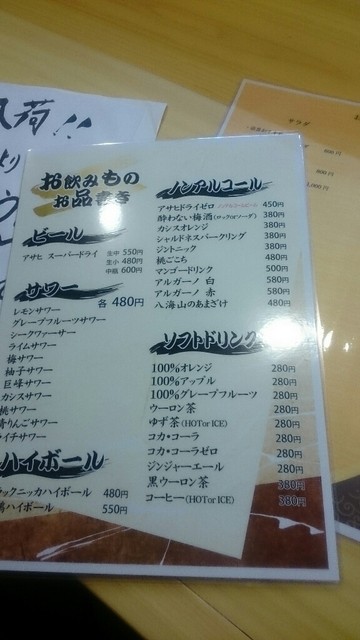 荷!!
より
お飲みもの
お品書き
ビール
アサヒ スーパードライ 生中 550円
生小 480円
中瓶 600円
サワー 各 480円
レモンサワー
グレープフルーツサワー
シークヮーサー
ライムサワー
梅サワー
柚子サワー
巨峰サワー
カシスサワー
桃サワー
青りんごサワー
ライチサワー
ハイボール
ラックニッカハイボール 480円
ハイボール 550円
ノンアルコール
アサヒドライゼロ ノンアルコールビール 450円
酔わない梅酒(ロックorソーダ) 380円
カシスオレンジ 380円
シャルドネスパークリング 380円
ジントニック 380円
桃ごこち 480円
マンゴードリンク 500円
アルガーノ 白 580円
アルガーノ 赤 580円
八海山のあまざけ 480円
ソフトドリンク
100%オレンジ 280円
100%アップル 280円
100%グレープフルーツ 280円
ウーロン茶 280円
ゆず茶(HOTorICE) 280円
コカ・コーラ 280円
コカ・コーラゼロ 280円
ジンジャーエール 280円
黒ウーロン茶 380円
コーヒー(HOTorICE) 380円
サラダ
800円
800円
1,000円